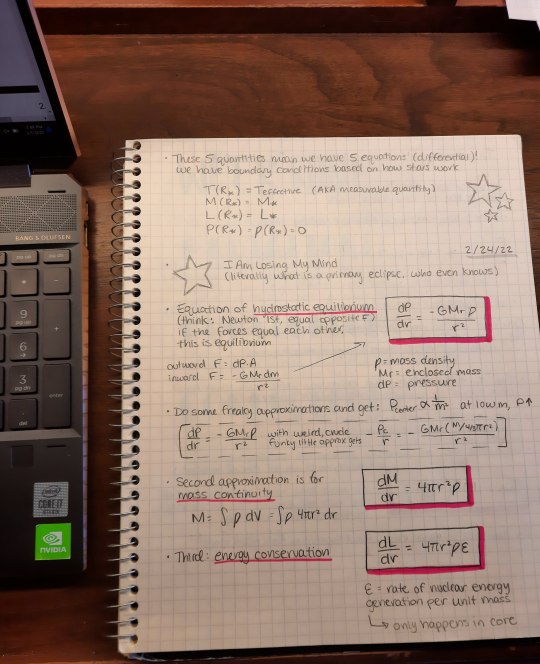 BANG & OLUFSEN
9
pg up
6
3
pg dn
enter
intel
CORE i7
NVIDIA
• These 5 quantities mean we have 5 equations (differential)!
we have boundary conditions based on how stars work
T(R*) = Teffective (AKA measurable quantity)
M(R*) = M*
L(R*) = L*
P(R*) = ρ(R*) = 0
2/24/22
• I Am Losing My Mind
(literally what is a primary eclipse, who even knows)
• Equation of hydrostatic equilibrium
(think: Newton 1st, equal opposite F)
if the forces equal each other,
this is equilibrium
dP/dr = -GMrρ/r²
outward F = dP·A
inward F = -GMrdm/r²
ρ = mass density
Mr = enclosed mass
dP = pressure
• Do some freaky approximations and get: Pcenter ∝ 1/m² at low m, P↑
[dP/dr = -GMrρ/r² with weird, crude funky little approx gets -Pc/r = -GMr(M/4/3πr³)/r²]
• Second approximation is for
mass continuity
dM/dr = 4πr²ρ
M = ∫ρ dV = ∫ρ 4πr² dr
• Third: energy conservation
dL/dr = 4πr²ρε
ε = rate of nuclear energy
generation per unit mass
↳ only happens in core